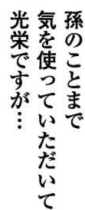 孫のことまで
気を使っていただいて
光栄ですが…